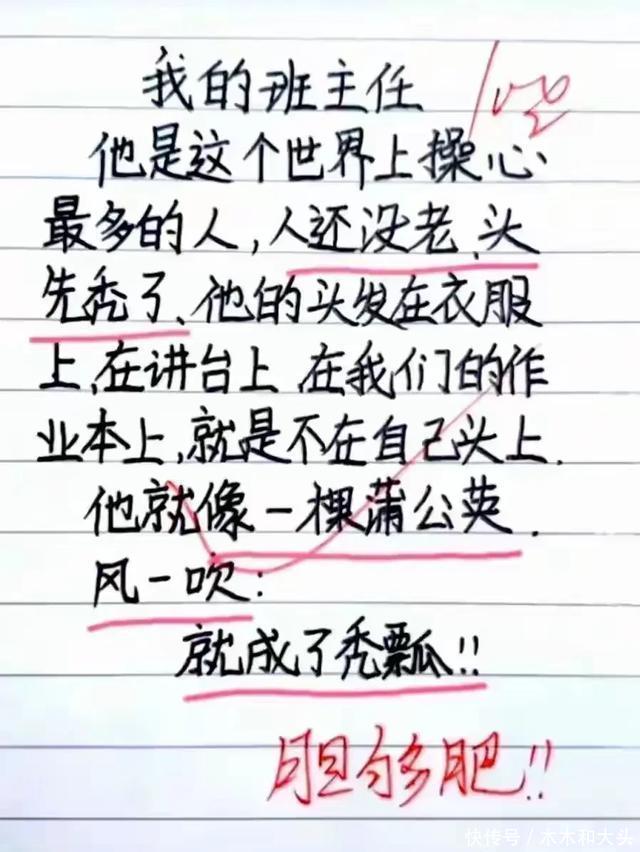 我的班主任
100
他是这个世界上操心
最多的人,人还没老、头
先秃了、他的头发在衣服
上、在讲台上 在我们的作
业本上,就是不在自己头上.
他就像一棵蒲公英.
风一吹:
就成了秃瓢!!
胆够肥!!
快传号/木木和大头